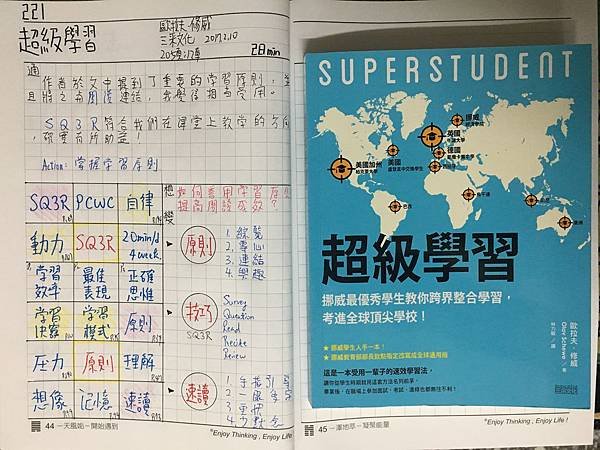 221
超級學習
歐拉夫·修威
三采文化 2017.2.10
205頁:17章
28min
通
作者於文中提到了重要的學習原則，並
且將之與閱讀連結，我覺得相當受用。
SQ3R符合我們在課堂上教學的方向，
確實有所助益！
Action: 掌握學習原則
SQ3R PCWC 自律
動力 SQ3R 20min/d 4week
學習效率 最佳表現 正確思惟
學習決策 學習模式 原則
壓力 原則 理解
想像 記憶 速讀
想 如何善用學習原則
提高閱讀成效？
變
原則
1. 綜覽
2. 專心
3. 連結
4. 興趣
技巧
SQ3R
Survey
Question
Read
Recite
Review
速讀
1. 手指引導
44 一天風姤－開始遇到
"Enjoy Thinking ; Enjoy Life !
SUPERSTUDENT
挪威
英國
德國
美國加州
美國
巴西
超級學習
挪威最優秀學生教你跨界整合學習，
考進全球頂尖學校！
★ 挪威學生人手一本！
★ 挪威教育部部長欽點指定改寫成全球通用版
這是一本受用一輩子的速效學習法，
讓你從學生時期就用這套方法名列前茅，
畢業後，在職場上參加面試、考試、進修也都無往不利！
歐拉夫・修威
Olav Schewe
著
林力敏
譯
45 －澤地萃－凝聚能量
"Enjoy Thinking ; Enjoy Life !